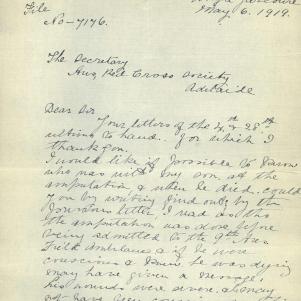 File
No-7176.
May 6. 1919.
The Secretary
Aus Red Cross Society
Adelaide
Dear Sir
Your letters of the 4th & 28th
ultimo to hand. for which I
thank you.
I would like if possible to know
who was with my son, at the
amputation, & when he died. could
you by writing find out, by the
letter, I had as tho
the amputation was done before
being admitted to the 9th Aus
Field Ambulance & if he were
conscious & knew he was dying
may have given a message.
his wounds were severe, &
not have been